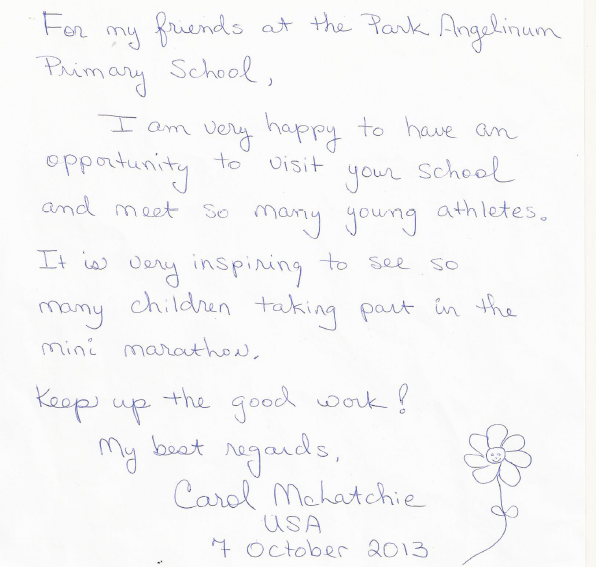 For my friends at the Park Angelinum
Primary School,
I am very happy to have an
opportunity to visit your school
and meet so many young athletes.
It is very inspiring to see so
many children taking part in the
mini marathon.
Keep up the good work!
My best regards,
Carol McLatchie
USA
7 October 2013